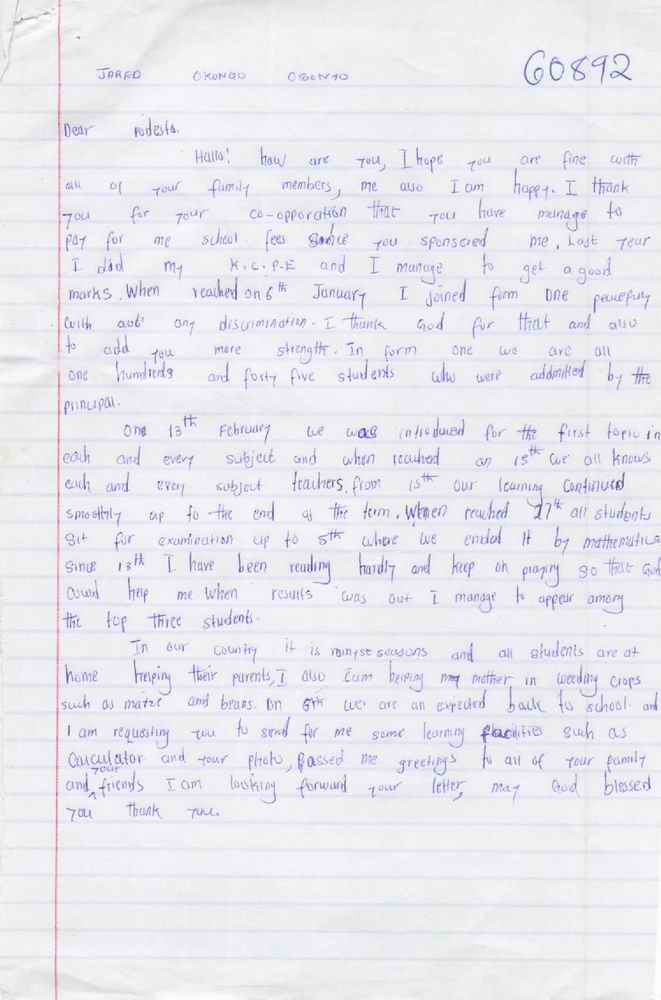 JARED OKONGO OGONYO 60892
Dear Modesta.
Hallo! how are you, I hope you are fine with
all of your family members, me also I am happy. I thank
you for your co-opporation that you have manage to
pay for me school fees since you sponsored me, Last year
I did my K.C.P.E and I manage to get a good
marks. When reached on 6th January I joined form one peacefully
with out any discrimination. I thank God for that and also
to add you more strength. In form one we are all
one hundreds and forty five students who were addmitted by the
principal.
One 13th February we was introduced for the first topic in
each and every subject and when reached on 15th we all knows
each and every subject teachers, from 15th our learning continued
smoothly up to the end of the term. When reached 27th all students
sit for examination up to 5th where we ended it by mathematics
since 13th I have been reading hardly and keep on praying so that God
could help me when results was out I manage to appear among
the top three students.
In our country it is seasons and all students are at
home helping their parents, I also Iam helping my mother in weeding crops
such as maize and beans. On 5th we are an expected back to school. and
I am requesting you to send for me some learning facilities such as
Calculator and your photo, Passed me greetings to all of your family
and your friends I am looking forward your letter, may God blessed
you thank you.